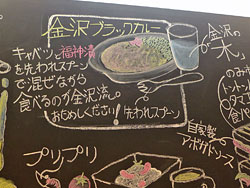 金沢ブラックカレー
キャベツと福神漬
を先われスプーン
で混ぜながら
食べるのが金沢流。
おためしください!先われスプーン
金沢の
水
自家製
アボカドソース
プリプリ
のお
トントン